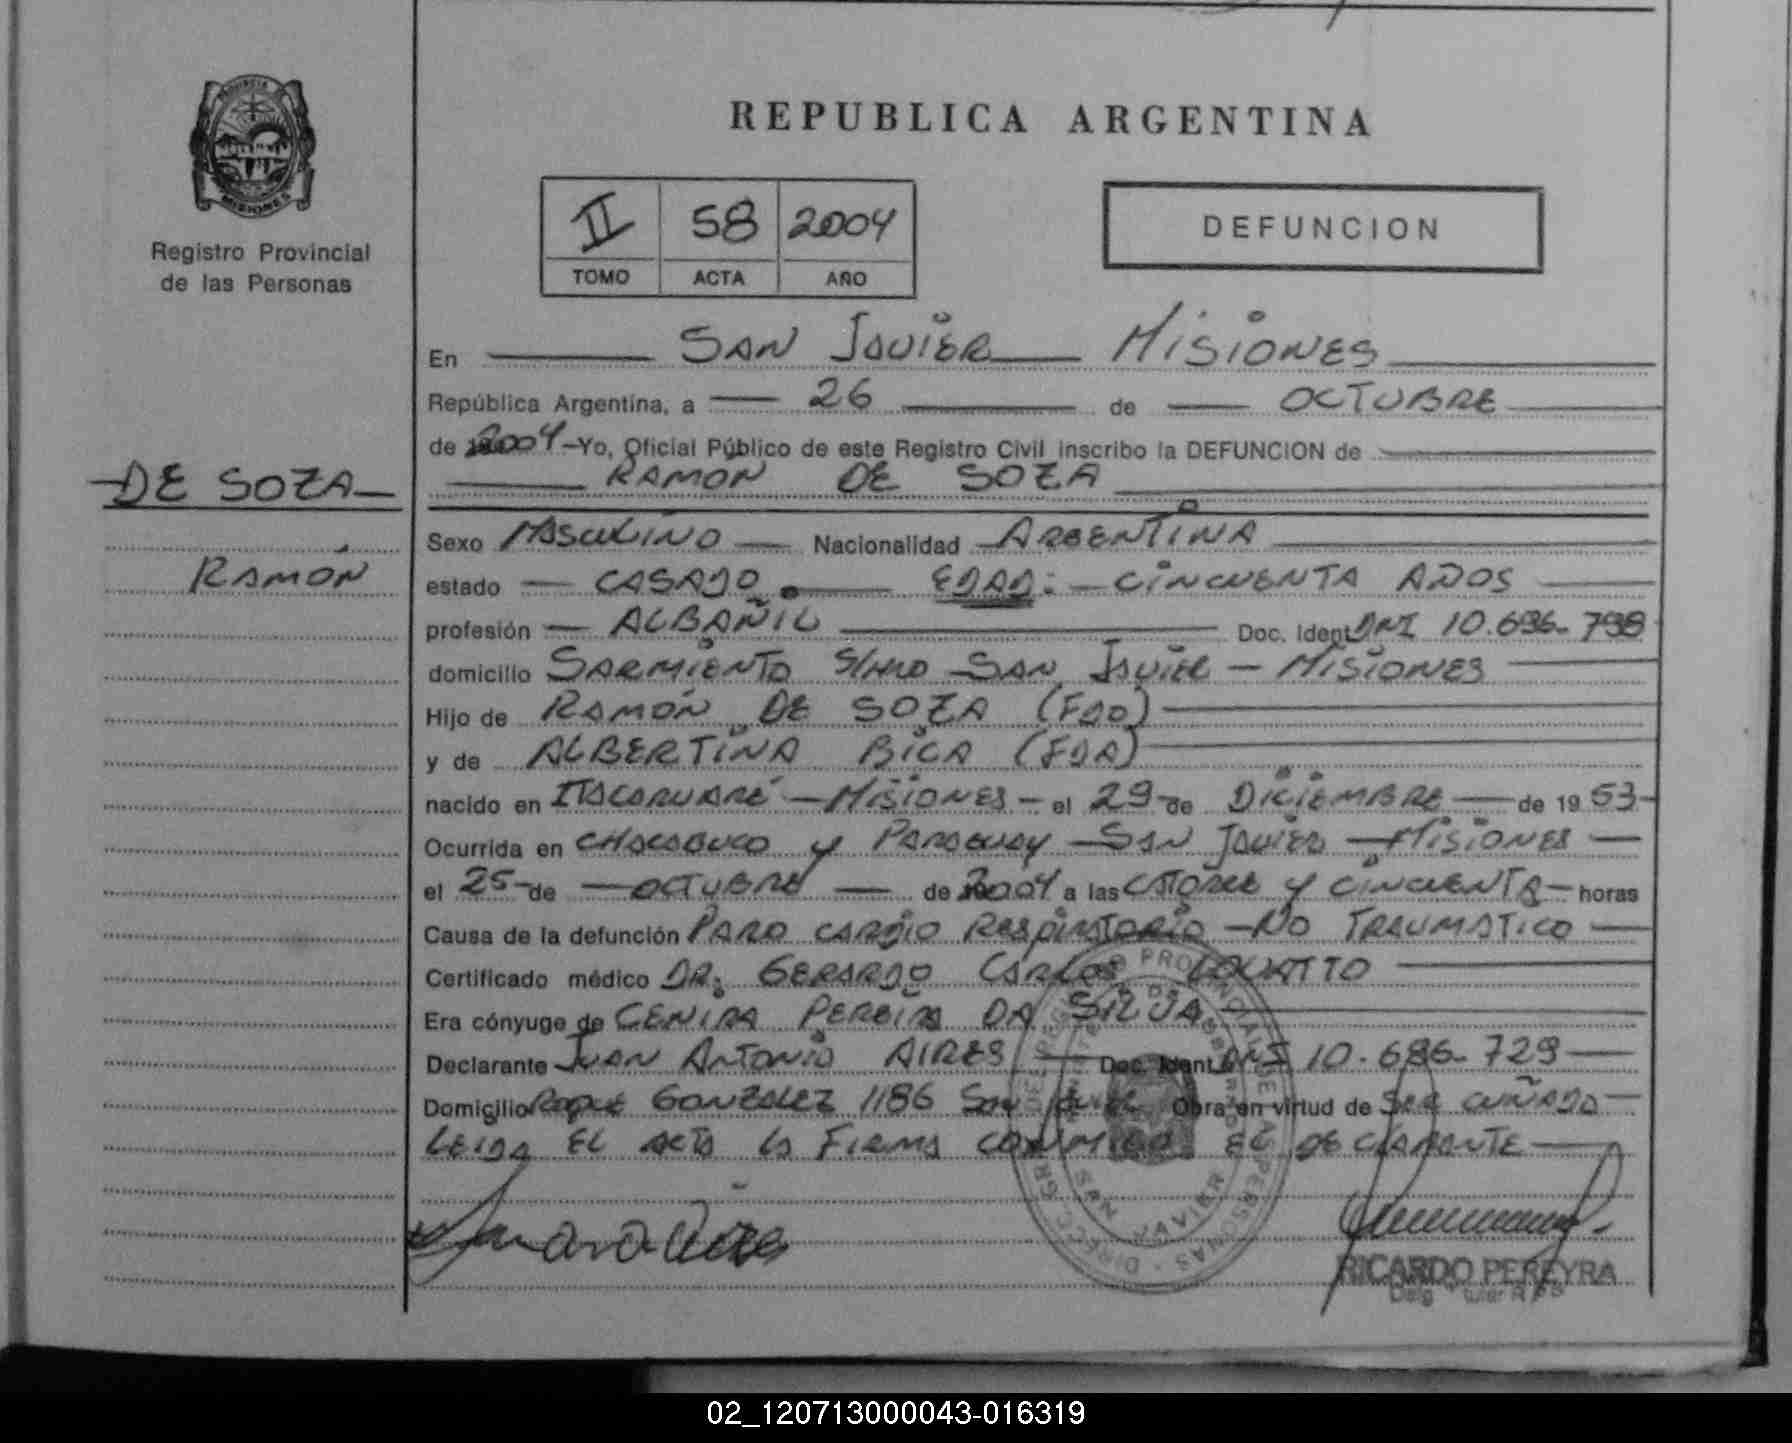 REPUBLICA ARGENTINA
PROVINCIA DE
MISIONES
Registro Provincial
de las Personas
II 58 2004
TOMO ACTA AÑO
DEFUNCION
En SAN JAVIER MISIONES
República Argentina, a 26 de OCTUBRE
de 2004 - Yo, Oficial Público de este Registro Civil inscribo la DEFUNCION de
RAMON DE SOZA
DE SOZA
RAMÓN
Sexo MASCULINO Nacionalidad ARGENTINA
estado CASADO. EDAD: CINCUENTA AÑOS
profesión ALBAÑIL Doc. Ident DNI 10.696.798
domicilio SARMIENTO S/NRO SAN JAVIER - MISIONES
Hijo de RAMÓN DE SOZA (FDO)
y de ALBERTINA BICA (FDA)
nacido en ITACARUARÉ - MISIONES - el 29 de DICIEMBRE de 1953
Ocurrida en CHACABUCO y PARAGUAY - SAN JAVIER - MISIONES
el 25 de OCTUBRE de 2004 a las CATORCE y CINCUENTA horas
Causa de la defunción PARO CARDIO RESPIRATORIO - NO TRAUMATICO
Certificado médico DR. GERARDO CARLOS LOVATTO
Era cónyuge de CENIRA PEREIRA DA SILVA
Declarante JUAN ANTONIO AIRES Doc. Ident DNI 10.686.729
Domicilio ROQUE GONZALEZ 1186 SAN JAVIER Obra en virtud de SER CUÑADO
LEIDA EL ACTA LA FIRMA CONMIGO EL DECLARANTE
RICARDO PEREYRA
02_120713000043-016319